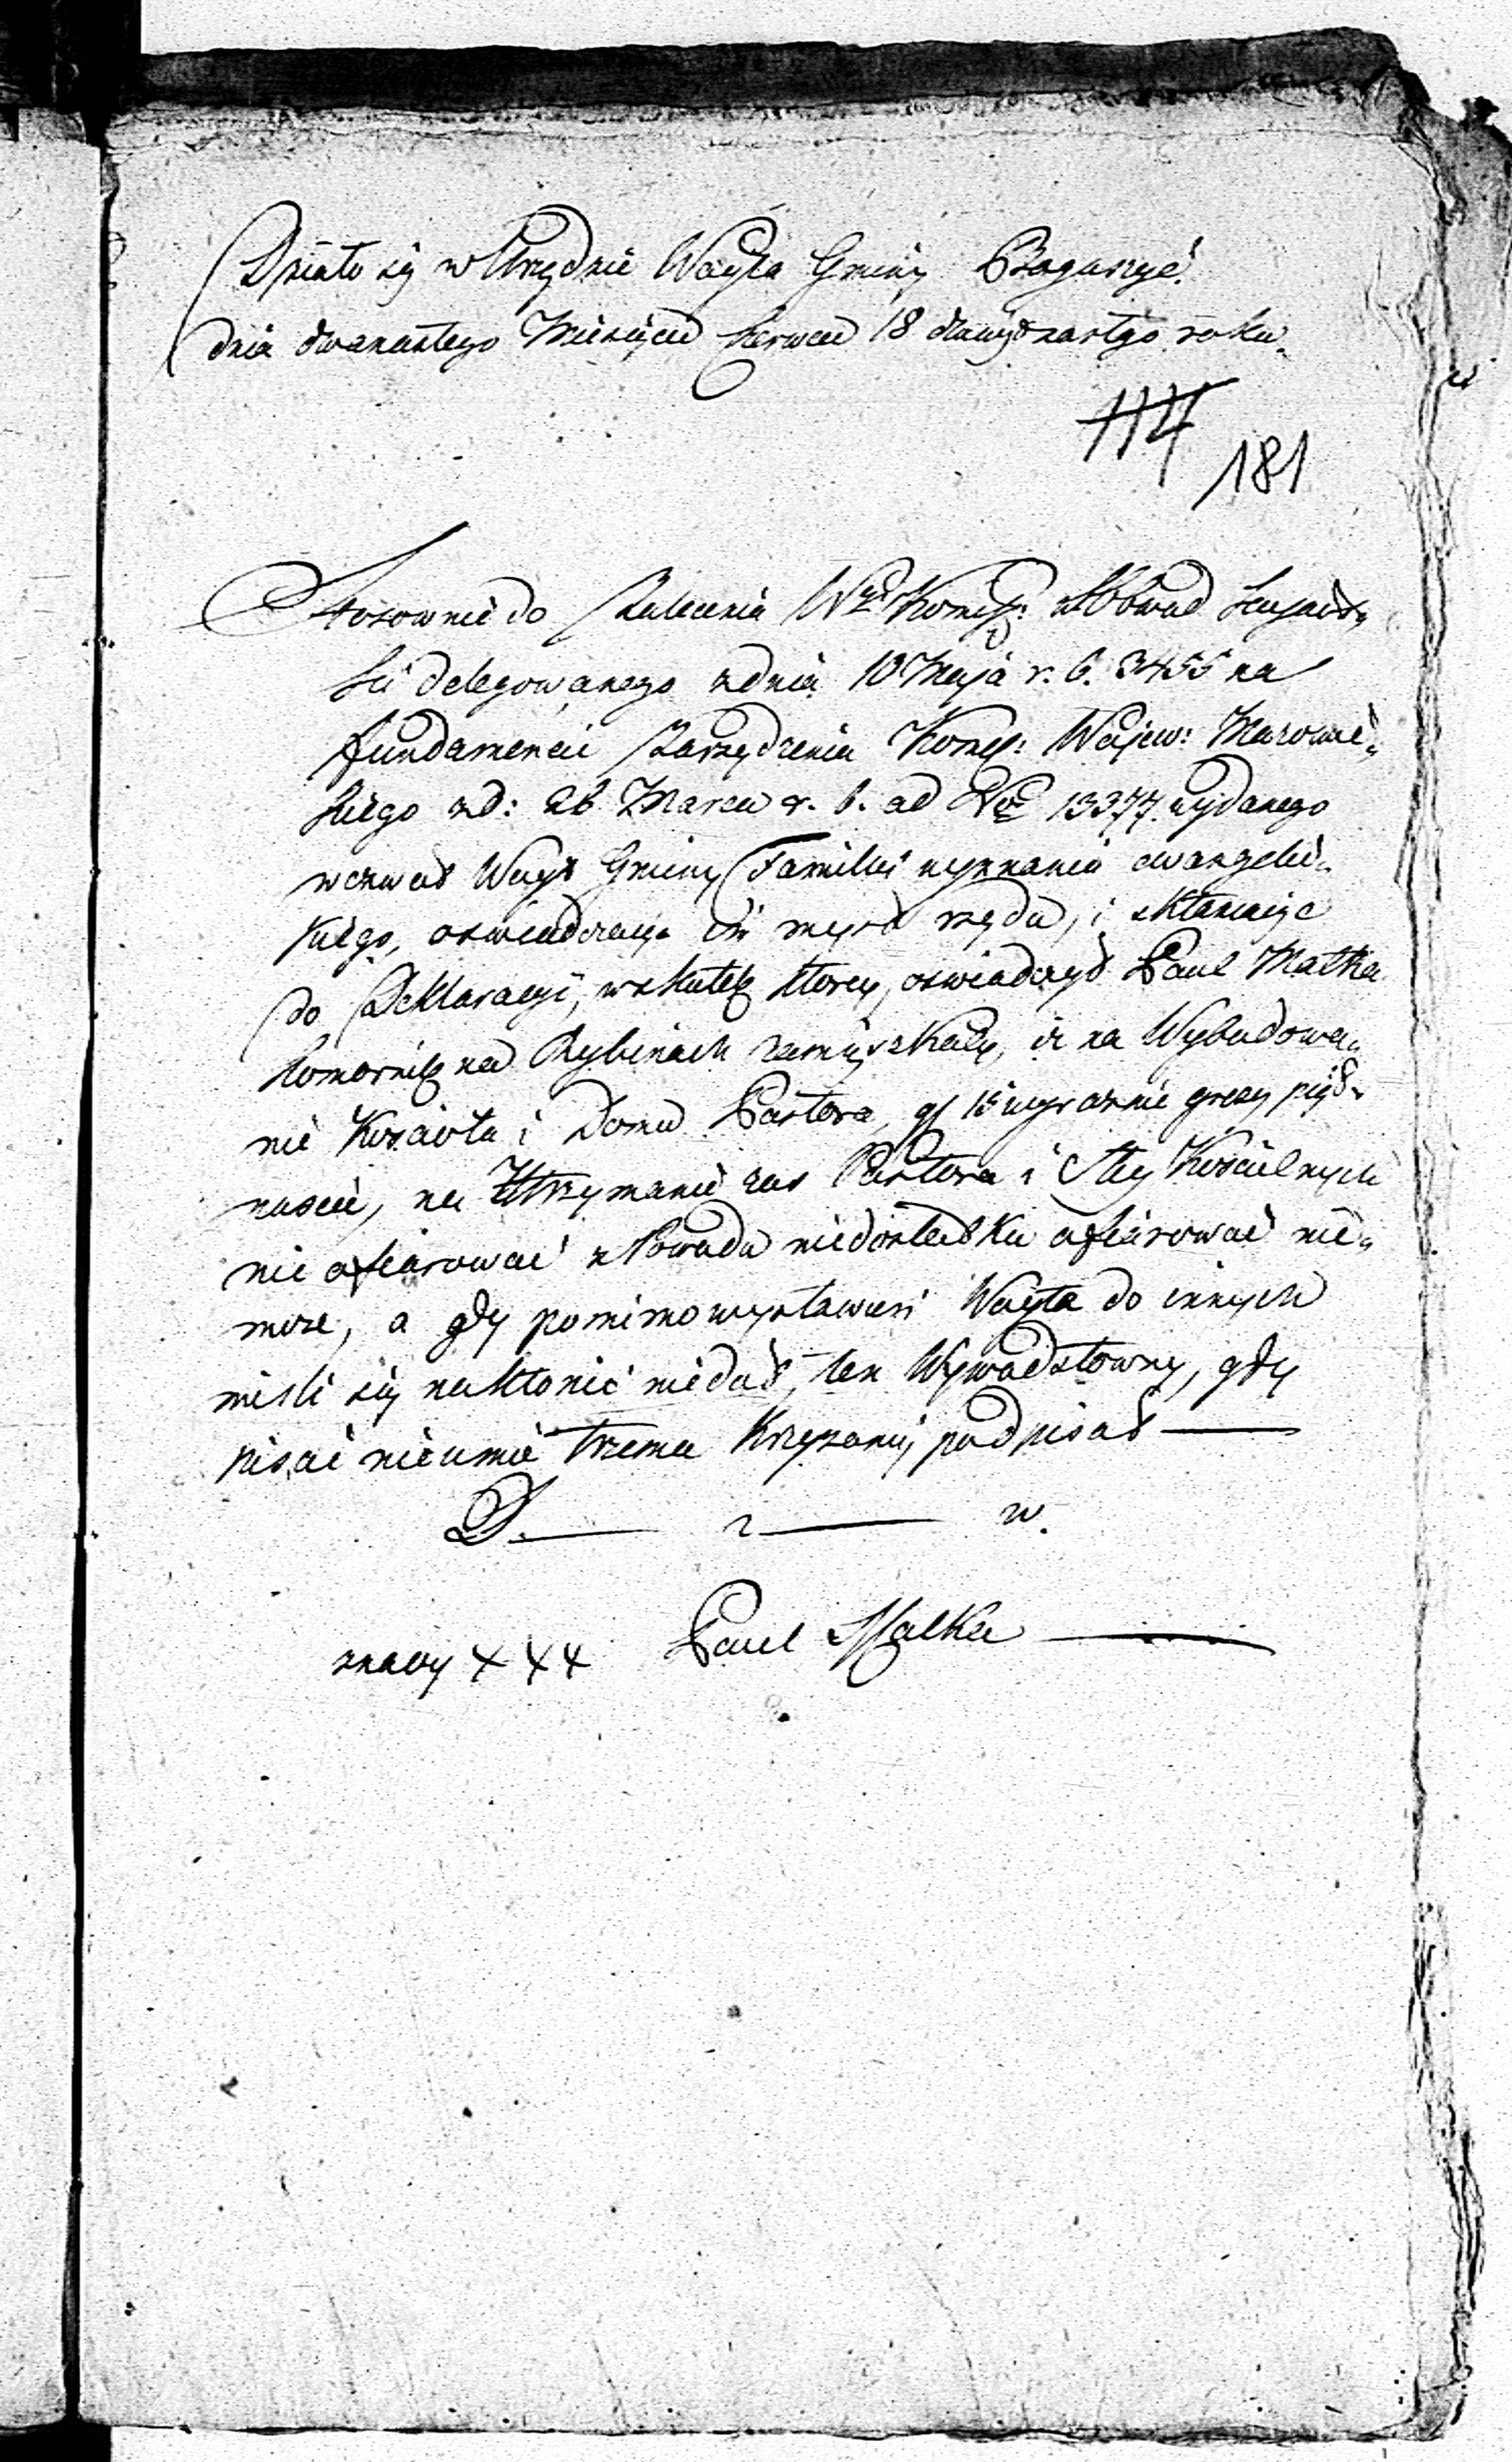 Działo się w Urzędzie Woyta Gminy Boguszyc
dnia dwunastego Miesiąca Czerwca 18 roku
114
181
Stosownie do Zalecenia Kommiss: Obwod
delegowanego z dnia 10 Maja r. b. 3455 na
fundamencie Rozrządzenia Komiss: Wojew: Mazowie„
ckiego z d: 26 Marca r. b. ad Nro 13377 wydanego
wezwał Woyt Gminy Familui wyznania ewangelic„
kiego, oświadczając im mysl rządu, i skłaniając
do Deklaracyi, wskutek ktorey, oswiadczył Paul Malka
komornik na Rybinach zamieszkały, iż na Wybudowa„
nie Kościoła i Domu Pastora, gl 15 wyraznie groszy pięt„
nascie, na Utrzymanie zas Pastora i Sług Koscielnych
nie ofiarować z Powodu niedostatku ofiarować nie„
może, a gdy pomimo wystawień Woyta do innych
mysli się nakłonić niedał, ten Wywod słowny, gdy
pisać nieumie trzema Krzyżami podpisał —
P. — z — w.
znaki + + + Paul Malka —